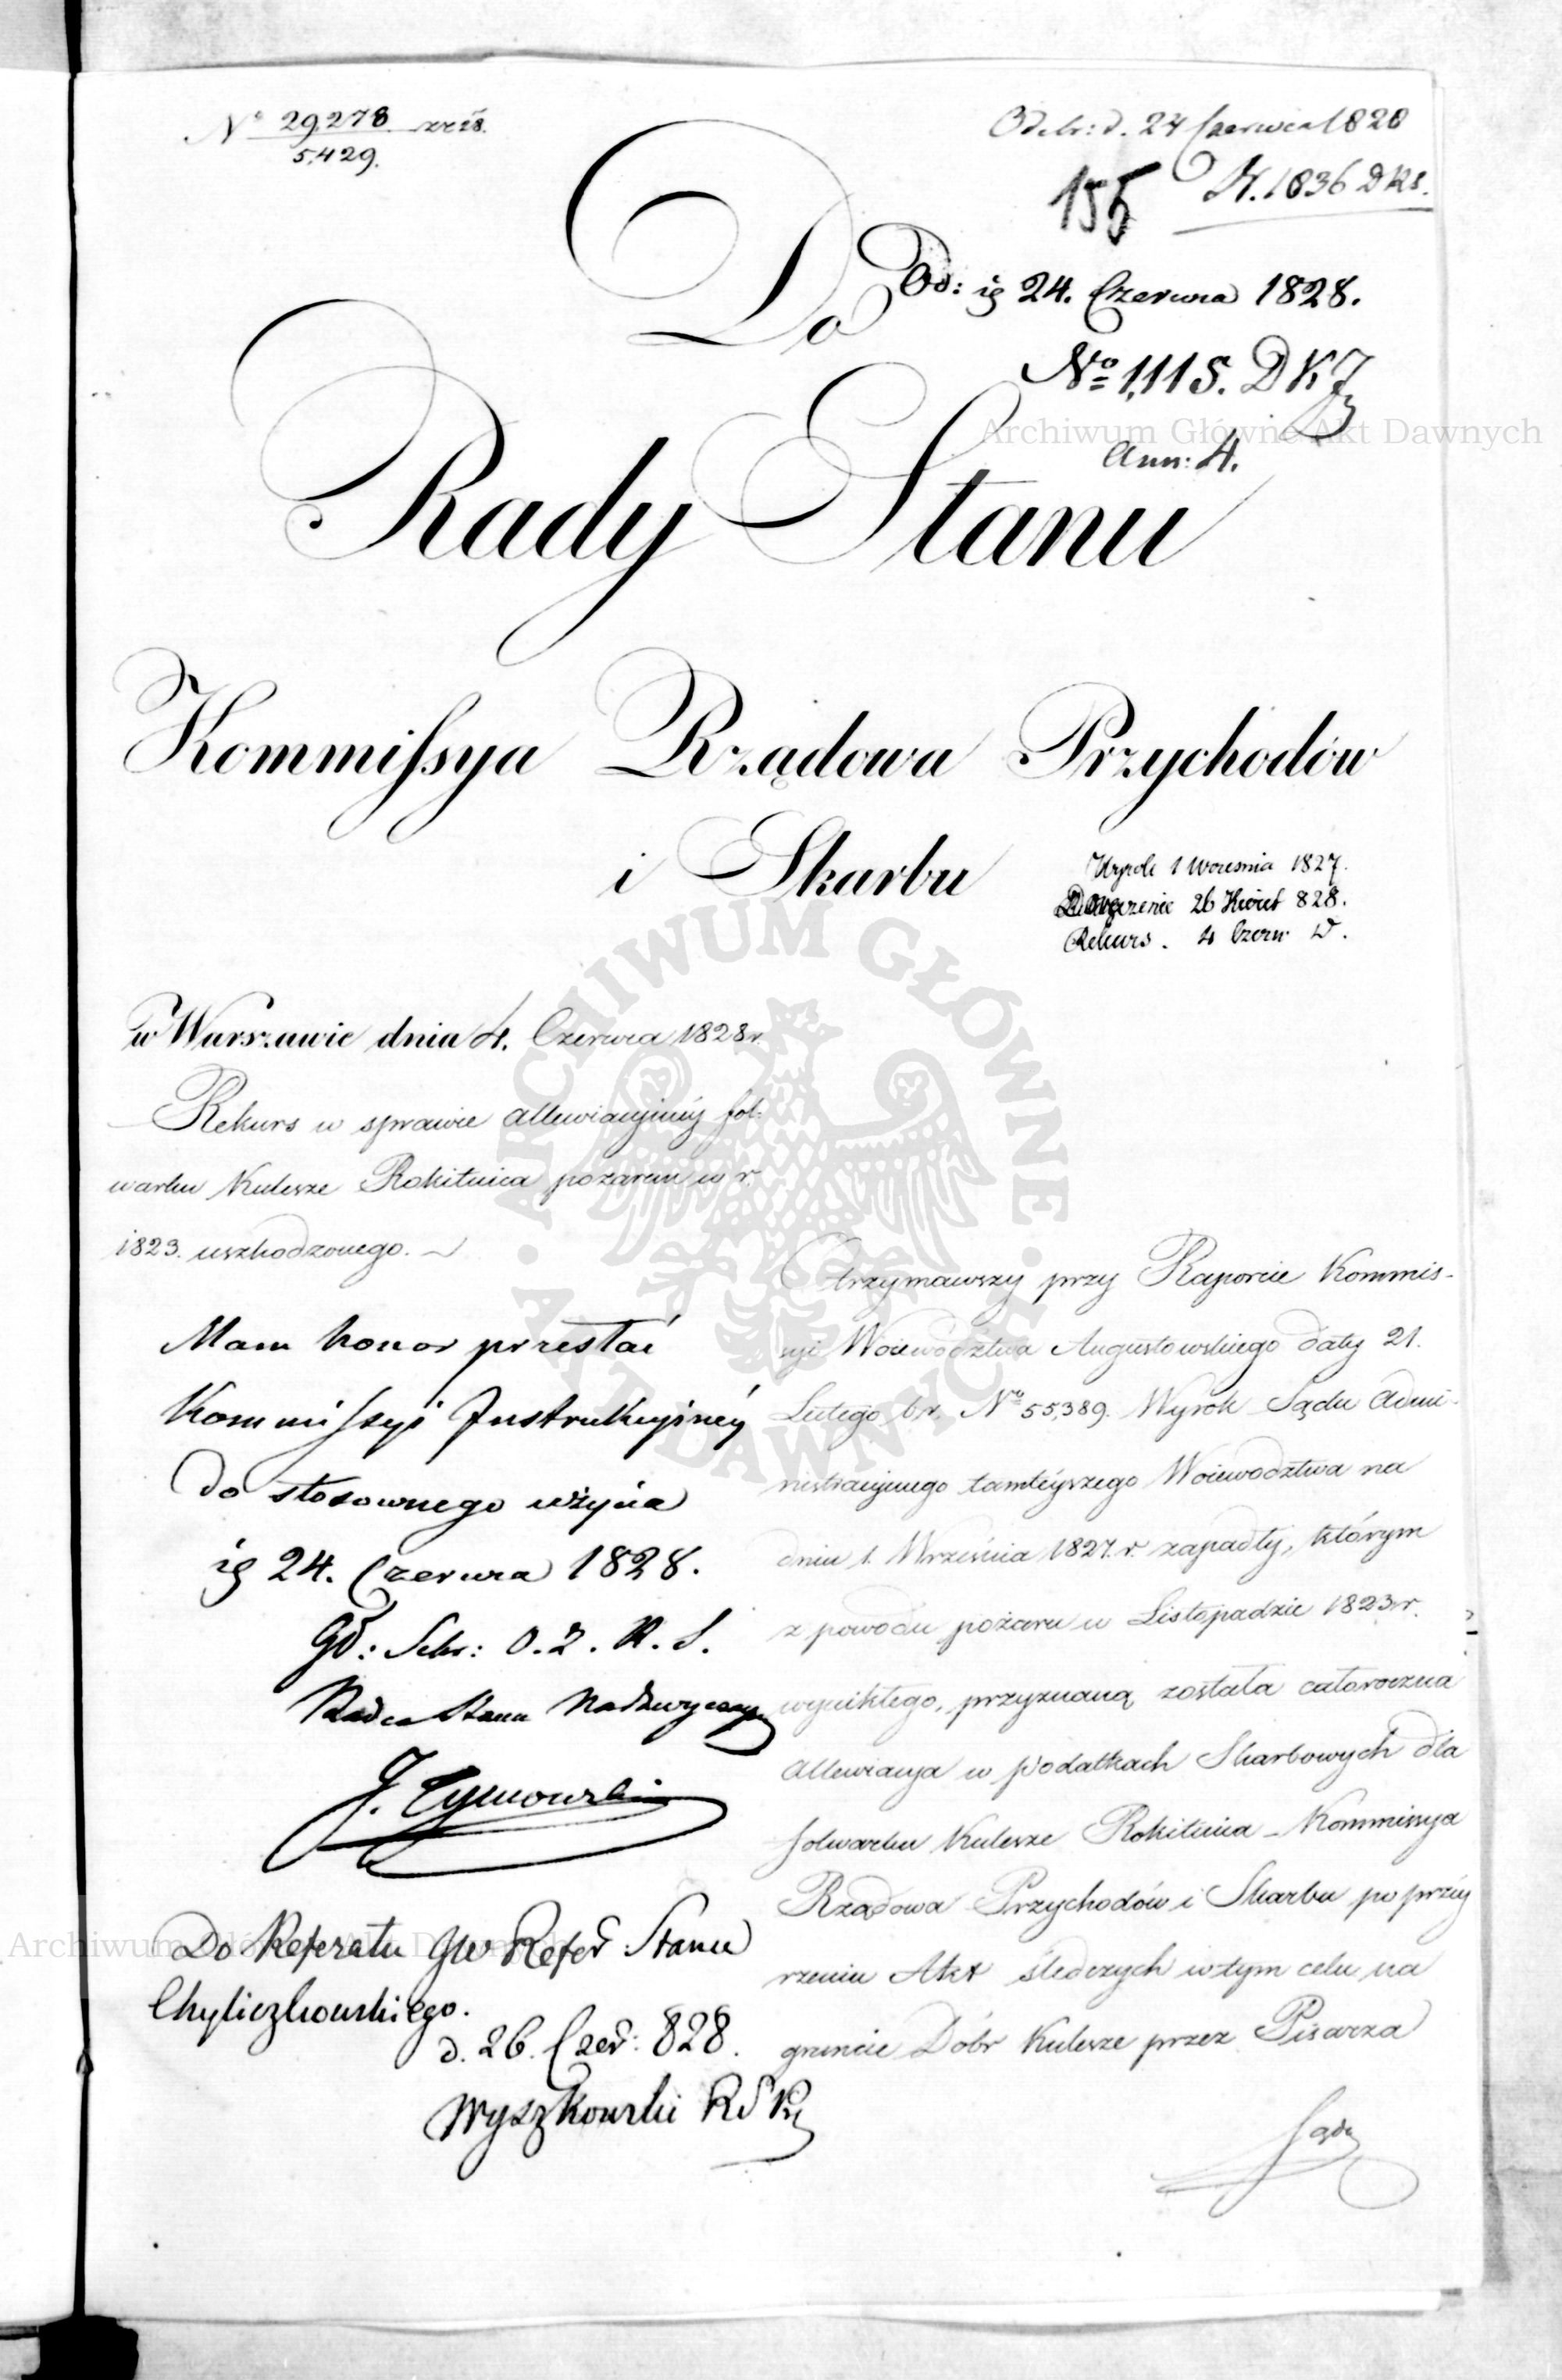 No 29,278
5,429.
Odebr: d. 24 Czerwca 1828
N. 1836 DKS.
155
Do
Od: ig 24. Czerwca 1828.
No 1,115. DKJ
Ann: 4.
Rady Stanu
Kommissya Rządowa Przychodów
i Skarbu
Wyrok 1 Wrzesnia 1827.
Doręczenie 26 Kwiet 828.
Rekurs. 4 Czerw
w Warszawie dnia 4. Czerwca 1828 r.
Rekurs w sprawie allewiacyinéy fol-
warku Kulesze Rokitnica pożarem w r.
1823. uszkodzonego.
Mam honor przesłać
Kommissyi Instrukcyinéy
do stosownego użycia
ig 24. Czerwca 1828.
Gd: Sekr: O. Z. R. S.
Radca Stanu Nadzwyczayny
J. Tymowski
Do Referatu JW Refer Stanu
Chyliczkowskiego.
d. 26. Czer: 828.
Wyszkowski RS
Otrzymawszy przy Raporcie Kommis-
syi Woiewództwa Augustowskiego daty 21.
Lutego b.r. No 55,389. Wyrok Sądu Admi-
nistracyinego tamtéyszego Woiewództwa na
dniu 1. Września 1827. r. zapadły, którym
z powodu pożaru w Listopadzie 1823 r.
wynikłego, przyznaną została całoroczna
allewiacya w podatkach Skarbowych dla
folwarku Kulesze Rokitnica - Kommissya
Rządowa Przychodów i Skarbu po przéy
rzeniu Akt śledczych w tym celu na
gruncie Dóbr Kulesze przez Pisarza
Sądu
Archiwum Główne Akt Dawnych
ARCHIWUM GŁÓWNE AKT DAWNYCH
Archiwum Główne Akt Dawnych